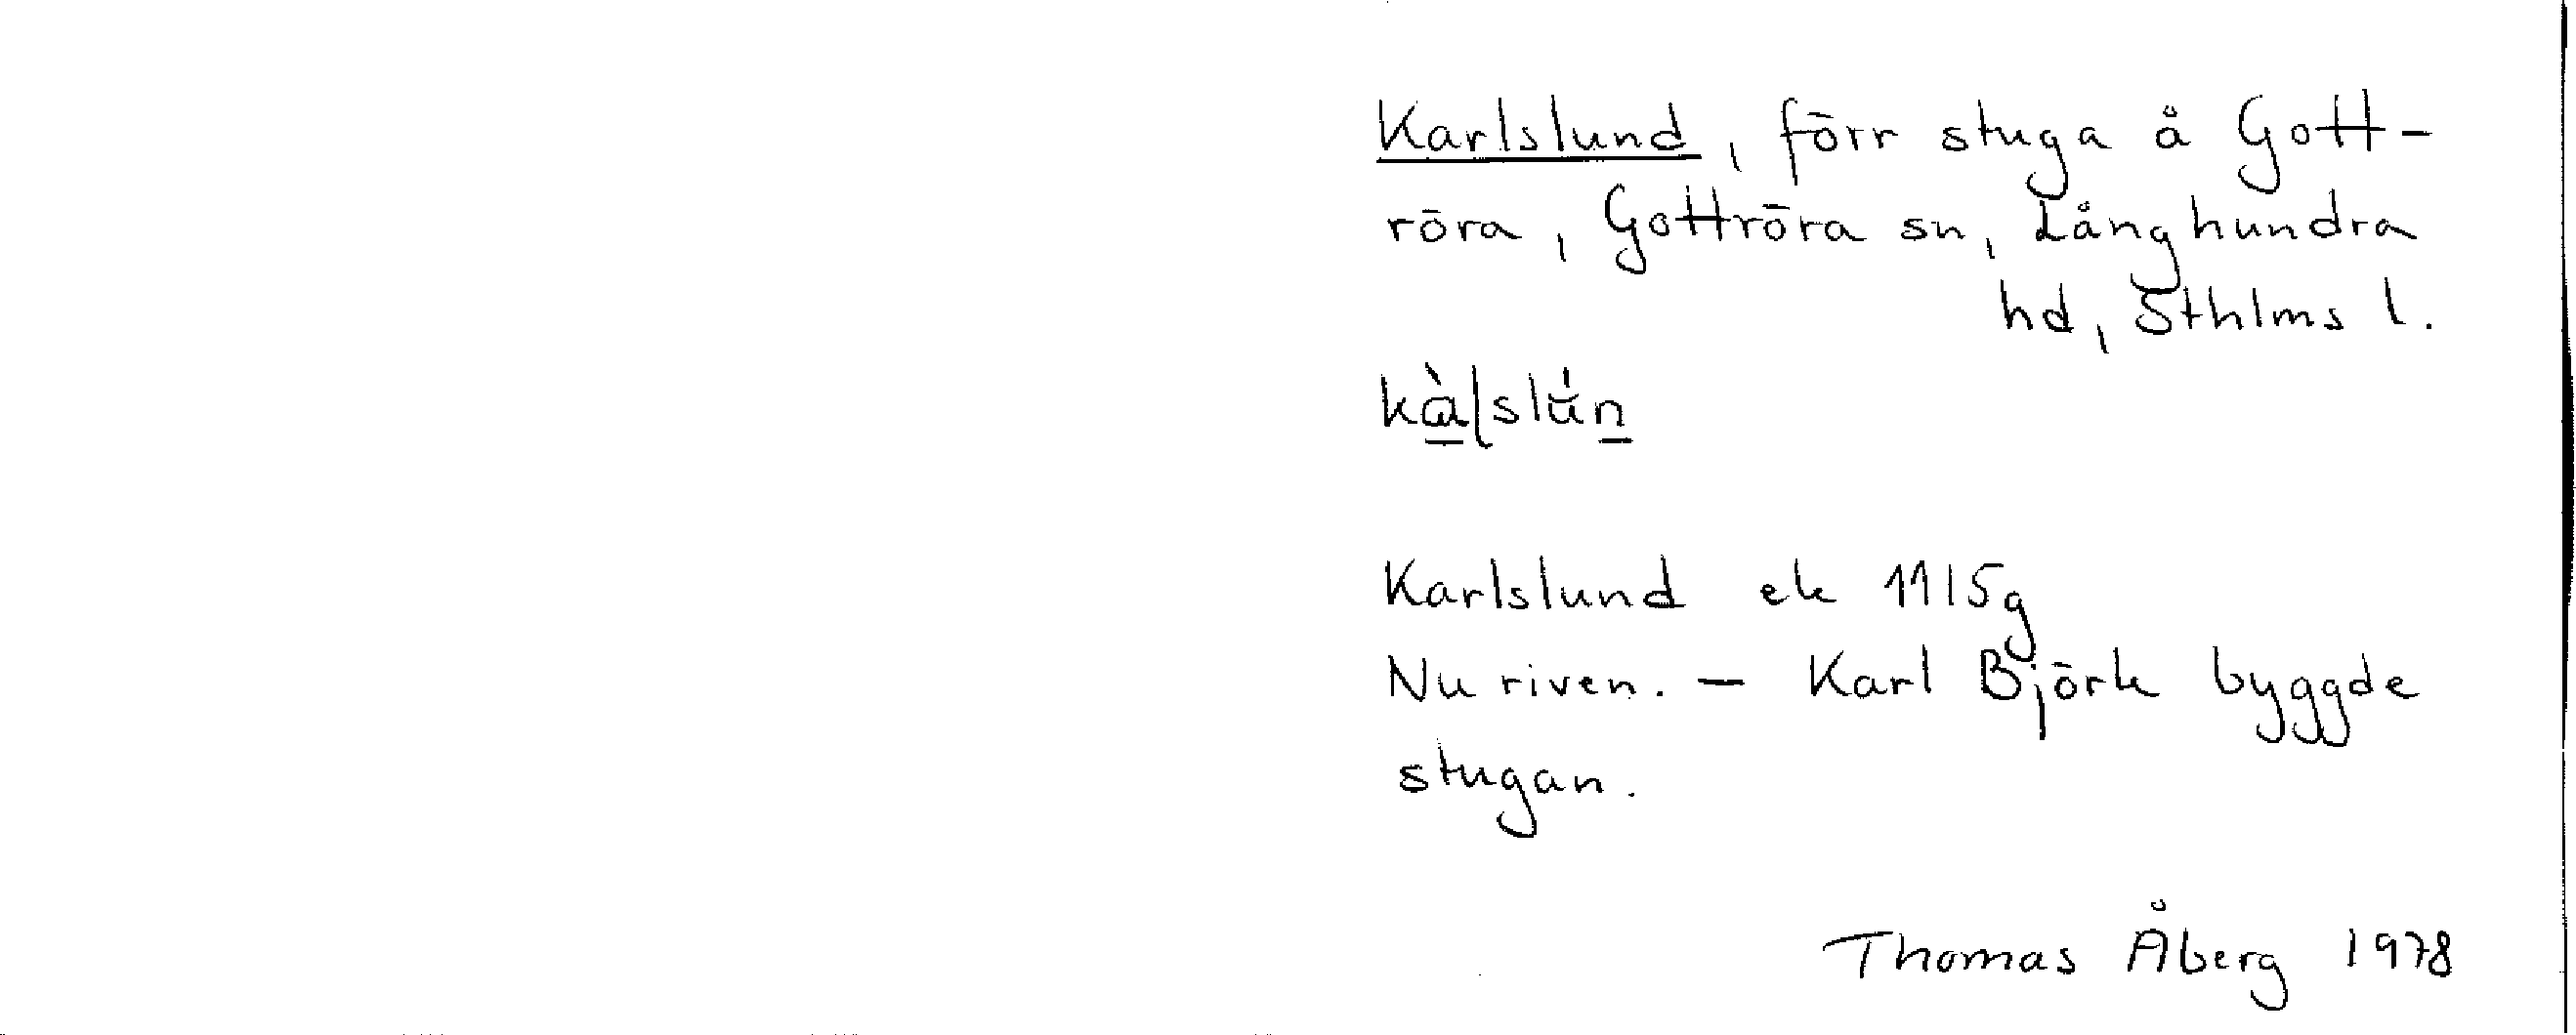 Karlslund, förr stuga å Gott-
röra, Gottröra sn, Långhundra
hd, Sthlms l.
Karlslund ek 11I5g
Nu riven. – Karl Björk byggde
stugan.
Thomas Åberg 1978